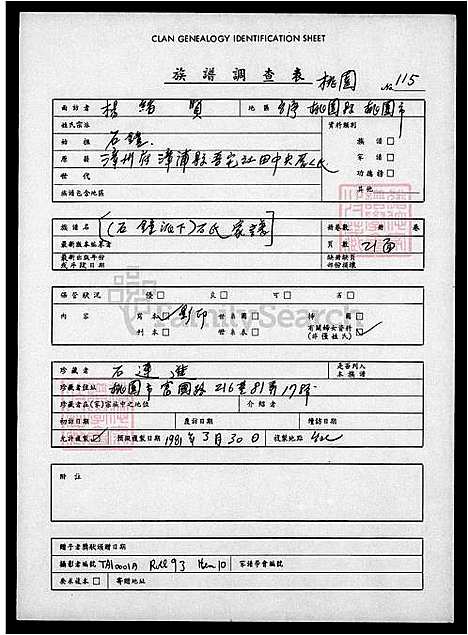 CLAN GENEALOGY IDENTIFICATION SHEET
族譜調查表 桃園 No 115
面訪者 楊緒賢 地區 台灣桃園縣桃園市
姓氏宗派 資料類別
始祖 石鐘 族譜 □
原籍 漳州府漳浦縣 家譜 □
世代 功德簿 □
族譜包含地區 其他
族譜名 [(石鐘派下)石氏家譜] 冊卷數 冊 卷
最新版本編著者 頁數 21面
最新出版年份 缺冊缺頁
或手稿日期 部份損壞
保管狀況 優 □ 良 □ 可 □ 否 □
內容 寫本 影印 世系圖 □ 掃圖 □
刊本 □ 世系表 □ 有關婦女資料
(非僅姓氏)
珍藏者 石連進 是否列入
本族譜
珍藏者住址 桃園市富國路216巷81弄17號
珍藏者在(家)宗族中之地位 介紹者
初訪日期 覆訪日期 續訪日期
允許複製 ☑ 預擬複製日期 1981年3月30日 複製地點
附註
贈予者獎狀頒贈日期
攝影者編號 TA10001A Roll 93 Item 10 家譜學會編號
要求複本 □ 寄贈地址
FamilySearch